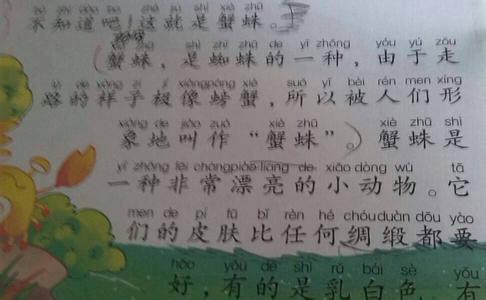 bù zhī dào ba zhè jiù shì xiè zhū
不知道吧!这就是蟹蛛。
xiè zhū shì zhī zhū de yì zhǒng yóu yú zǒu
(蟹蛛,是蜘蛛的一种,由于走
lù de yàng zi jí xiàng páng xiè suǒ yǐ bèi rén men xíng
路的样子极像螃蟹,所以被人们形
xiàng de jiào zuò xiè zhū xiè zhū shì
象地叫作“蟹蛛”。)蟹蛛是
yì zhǒng fēi cháng piào liang de xiǎo dòng wù tā
一种非常漂亮的小动物。它
men de pí fū bǐ rèn hé chóu duàn dōu yào
们的皮肤比任何绸缎都要
hǎo yǒu de shì rǔ bái sè yǒu
好,有的是乳白色,有